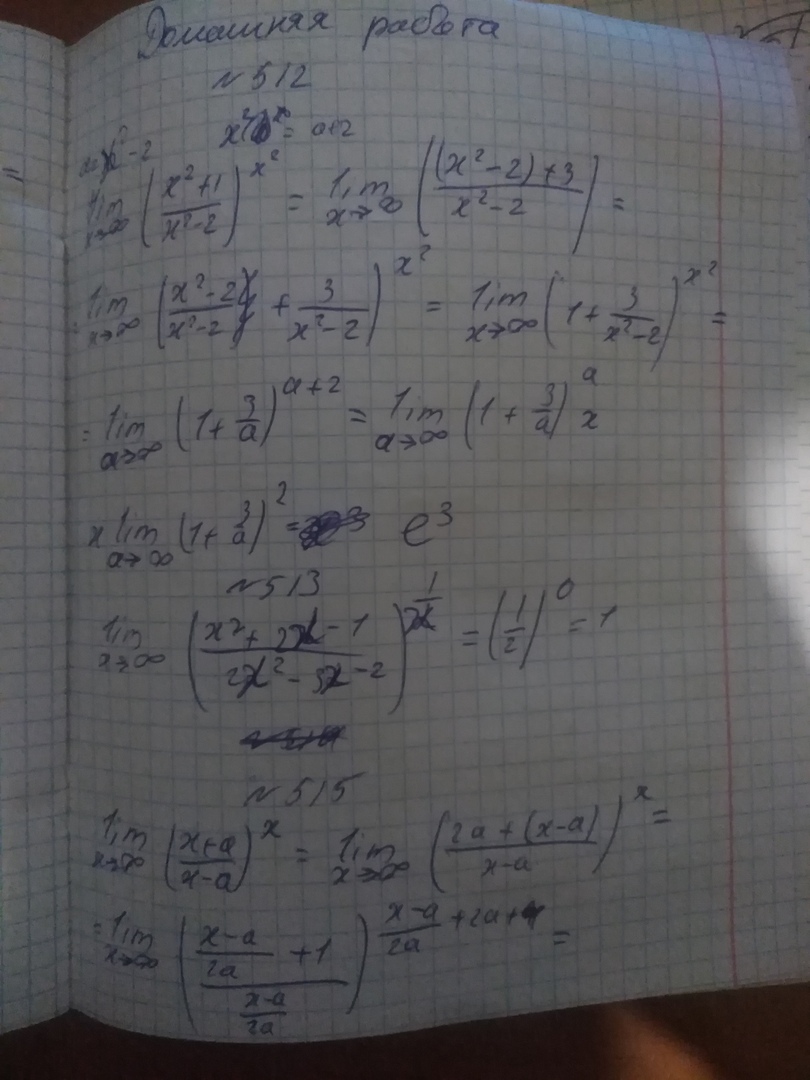 Домашняя работа
№ 512
a=x²-2 x² = a+2
lim x→∞ ((x²+1)/(x²-2))^x² = lim x→∞ (((x²-2)+3)/(x²-2)) =
= lim x→∞ ((x²-2)/(x²-2) + 3/(x²-2))^x² = lim x→∞ (1+3/(x²-2))^x² =
= lim a→∞ (1+3/a)^(a+2) = lim a→∞ (1+3/a)^a x
x lim a→∞ (1+3/a)² = e³
№ 513
lim x→∞ ((x²+2x-1)/(2x²-3x-2))^(1/x) = (1/2)^0 = 1
№ 515
lim x→∞ ((x+a)/(x-a))^x = lim x→∞ ((2a+(x-a))/(x-a))^x =
= lim x→∞ (((x-a)/2a +1)/((x-a)/2a))^((x-a)/2a +2a+ =